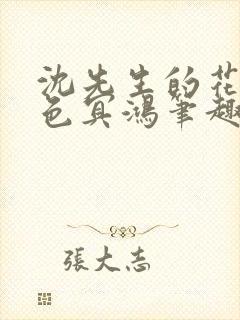 沈先生的花
色冥鴻筆趣
張大志